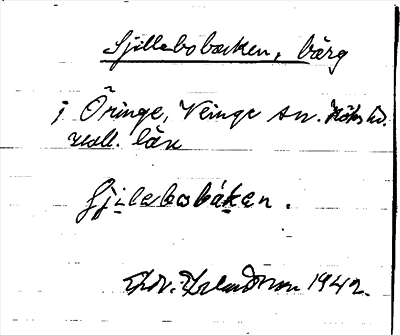 Sjillebobacken, bärg
i Öringe, Veinge sn. Höks hd.
Hall. län
Sjilebobáken.
Thdr. Erlandsson 1942.